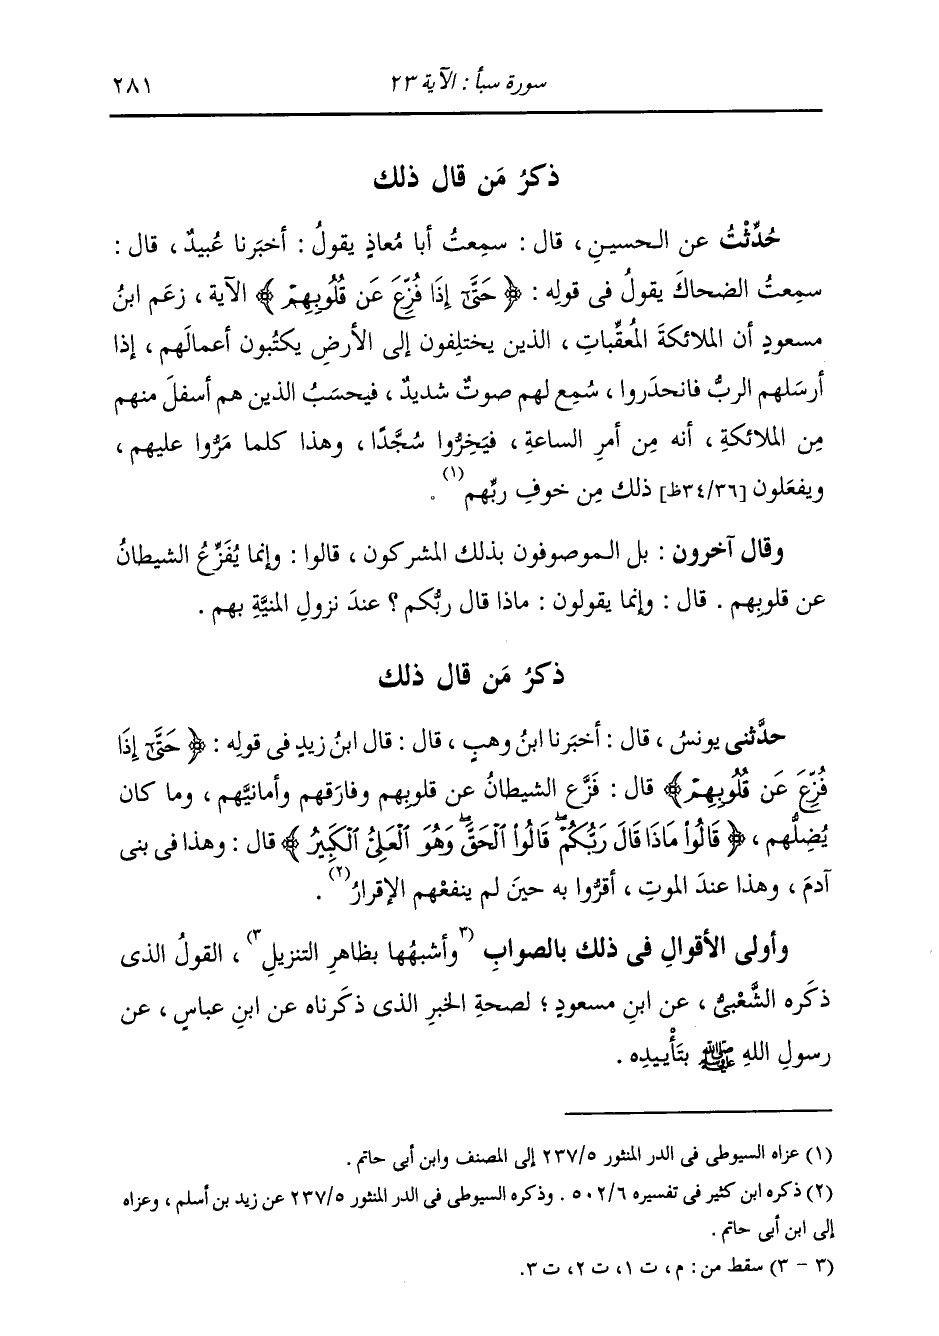 سورة سبأ : الآية ٢٣
٢٨١
ذكرُ مَن قال ذلك
حُدِّثْتُ عن الحسينِ ، قال : سمِعتُ أبا مُعاذٍ يقولُ : أخبَرنا عُبيدٌ ، قال :
سمِعتُ الضحاكَ يقولُ فى قولِه : ﴿ حَتَّىٰٓ إِذَا فُزِّعَ عَن قُلُوبِهِمْ ﴾ الآية ، زعَم ابنُ
مسعودٍ أن الملائكةَ المُعقِّباتِ ، الذين يختلِفون إلى الأرضِ يكتُبون أعمالَهم ، إذا
أرسَلهم الربُّ فانحدَروا ، سُمِع لهم صوتٌ شديدٌ ، فيحسَبُ الذين هم أسفلَ منهم
مِن الملائكةِ ، أنه مِن أمرِ الساعةِ ، فيَخِرُّوا سُجَّدًا ، وهذا كلما مَرُّوا عليهم ،
ويفعَلون [٣٤/٣٦ظ] ذلك مِن خوفِ ربِّهم (١) .
وقال آخرون : بل الموصوفون بذلك المشركون ، قالوا : وإنما يُفَزِّعُ الشيطانُ
عن قلوبِهم . قال : وإنما يقولون : ماذا قال ربُّكم ؟ عندَ نزولِ المنيَّةِ بهم .
ذكرُ مَن قال ذلك
حدَّثنى يونسُ ، قال : أخبَرنا ابنُ وهبٍ ، قال : قال ابنُ زيدٍ فى قولِه : ﴿ حَتَّىٰٓ إِذَا
فُزِّعَ عَن قُلُوبِهِمْ ﴾ قال : فَزَّع الشيطانُ عن قلوبِهم وفارَقهم وأمانيَّهم ، وما كان
يُضِلُّهم ، ﴿ قَالُوا۟ مَاذَا قَالَ رَبُّكُمْ ۖ قَالُوا۟ ٱلْحَقَّ ۖ وَهُوَ ٱلْعَلِىُّ ٱلْكَبِيرُ ﴾ قال : وهذا فى بنى
آدمَ ، وهذا عندَ الموتِ ، أقرُّوا به حينَ لم ينفعْهم الإقرارُ (٢) .
وأولى الأقوالِ فى ذلك بالصوابِ (٣ وأشبهُها بظاهرِ التنزيلِ ٣) ، القولُ الذى
ذكَره الشَّعْبىُّ ، عن ابنِ مسعودٍ ؛ لصحةِ الخبرِ الذى ذكَرناه عن ابنِ عباسٍ ، عن
رسولِ اللهِ ﷺ بتَأْييدِه .
(١) عزاه السيوطى فى الدر المنثور ٢٣٧/٥ إلى المصنف وابن أبى حاتم .
(٢) ذكره ابن كثير فى تفسيره ٥٠٢/٦ . وذكره السيوطى فى الدر المنثور ٢٣٧/٥ عن زيد بن أسلم ، وعزاه
إلى ابن أبى حاتم .
(٣ - ٣) سقط من : م ، ت ١، ت ٢، ت ٣.